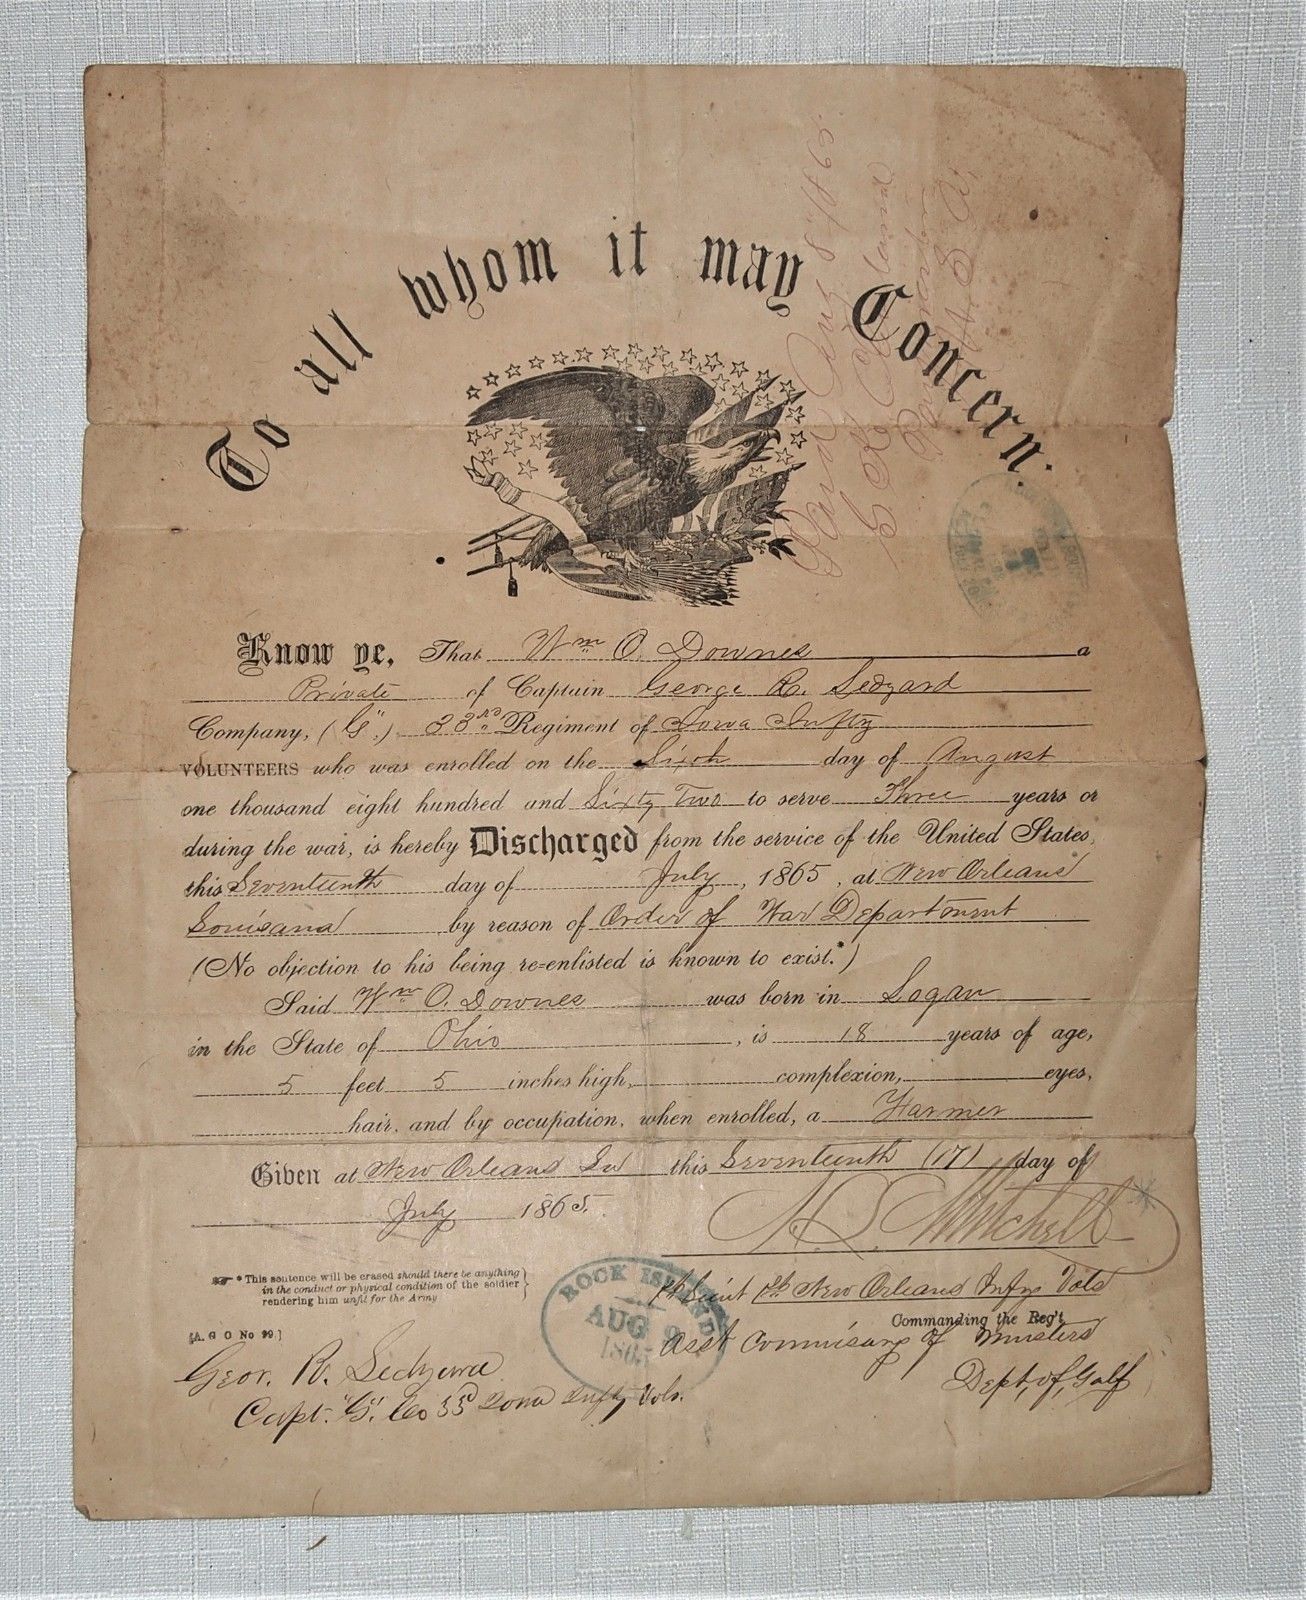 To all whom it may Concern.
Paid Aug 8th/1865.
Paymaster
U.S.A.
Know ye, That Wm O. Downes a
Private of Captain George R. Ledyard
Company, ("G".) 33rd Regiment of Iowa Infty
VOLUNTEERS who was enrolled on the Sixth day of August
one thousand eight hundred and Sixty Two to serve Three years or
during the war, is hereby Discharged from the service of the United States,
this Seventeenth day of July, 1865, at New Orleans
Louisana by reason of Order of War Department
(No objection to his being re-enlisted is known to exist.*)
Said Wm O. Downes was born in Logan
in the State of Ohio, is 18 years of age,
5 feet 5 inches high, complexion, eyes,
hair, and by occupation, when enrolled, a Farmer
Given at New Orleans La this Seventeenth (17) day of
July 1865.
H. S. Mitchell
☞ * This sentence will be erased should there be anything
in the conduct or physical condition of the soldier
rendering him unfit for the Army
ROCK ISLAND
AUG 9
1865
1st Lieut 1st New Orleans Infy Vols
Commanding the Reg't
[A. G O No 99.]
Asst Commisary of Musters
Geor. R. Ledyard
Dept, of, Golf
Capt. "G". Co 33d Iowa Infty Vols.